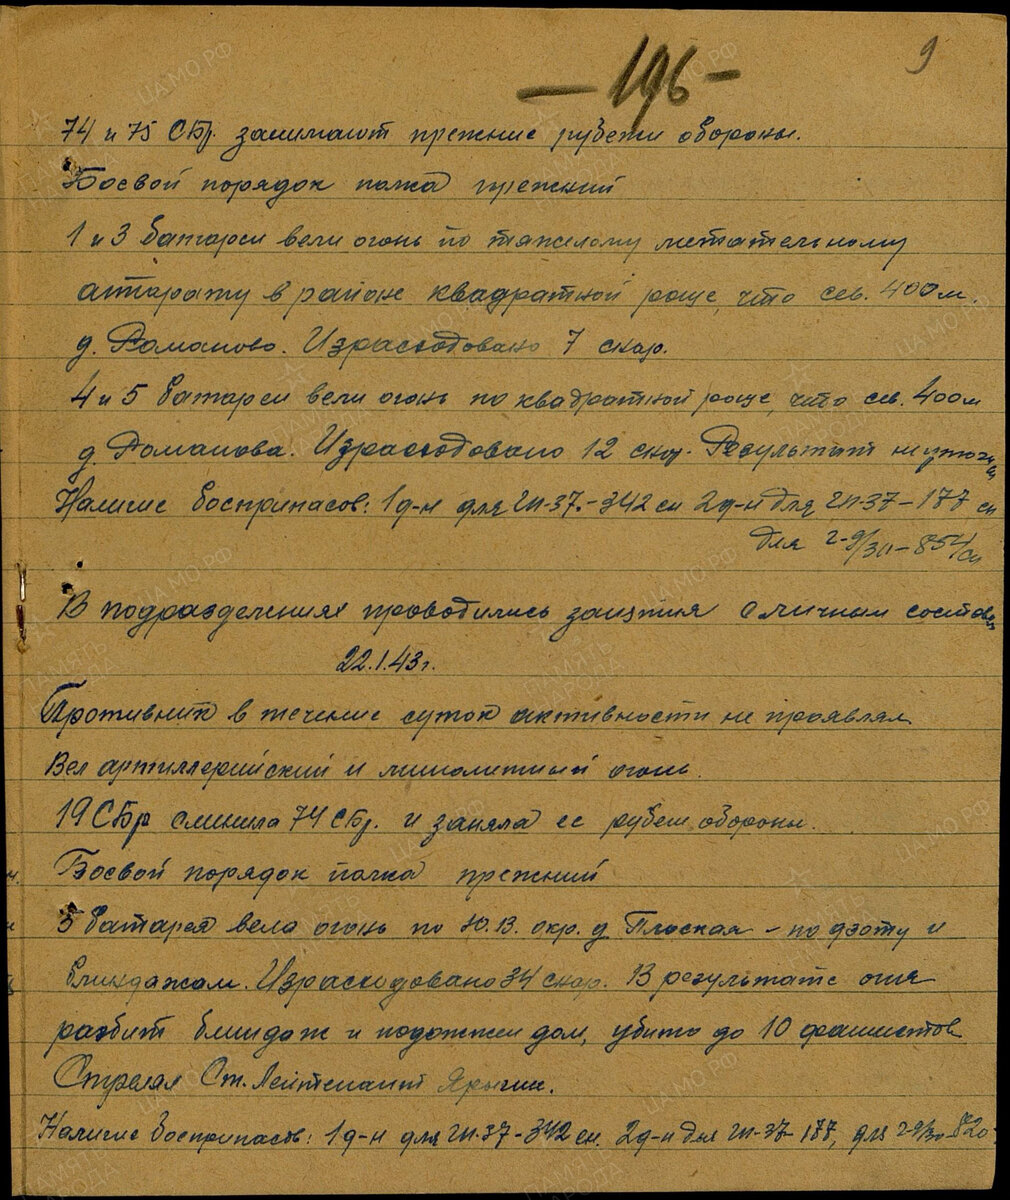 9
- 196 -
74 и 75 СБр. занимают прежние рубежи обороны.
Боевой порядок полка прежний
1 и 3 батареи вели огонь по тяжелому метательному
аппарату в районе квадратной роще, что сев. 400 м.
д. Романово. Израсходовано 7 снар.
4 и 5 батареи вели огонь по квадратной роще, что сев. 400 м
д. Романова. Израсходовано 12 снар. Результат не уточнен
Наличие боеприпасов: 1 д-н для гп-37.-342 сн 2 д-н для гп-37-177 сн
для г-9/30-854/сн
В подразделениях проводились занятия с личным составом
22.1.43г.
Противник в течение суток активности не проявлял
Вел артиллерийский и минометный огонь.
19 СБр сменила 74 СБр. и заняла ее рубеж обороны.
Боевой порядок полка прежний
5 батарея вела огонь по Ю.В. окр. д Плоская - по дзоту и
блиндажам. Израсходовано 34 снар. В результате огня
разбит блиндаж и подожжен дом, убито до 10 фашистов
Стрелял Ст. Лейтенант Ярыгин.
Наличие боеприпасов: 1 д-н для гп-37-342 сн. 2 д-н для гп-37-177, для г-9/30-820
ПАМЯТЬ НАРОДА
ЦА МО РФ